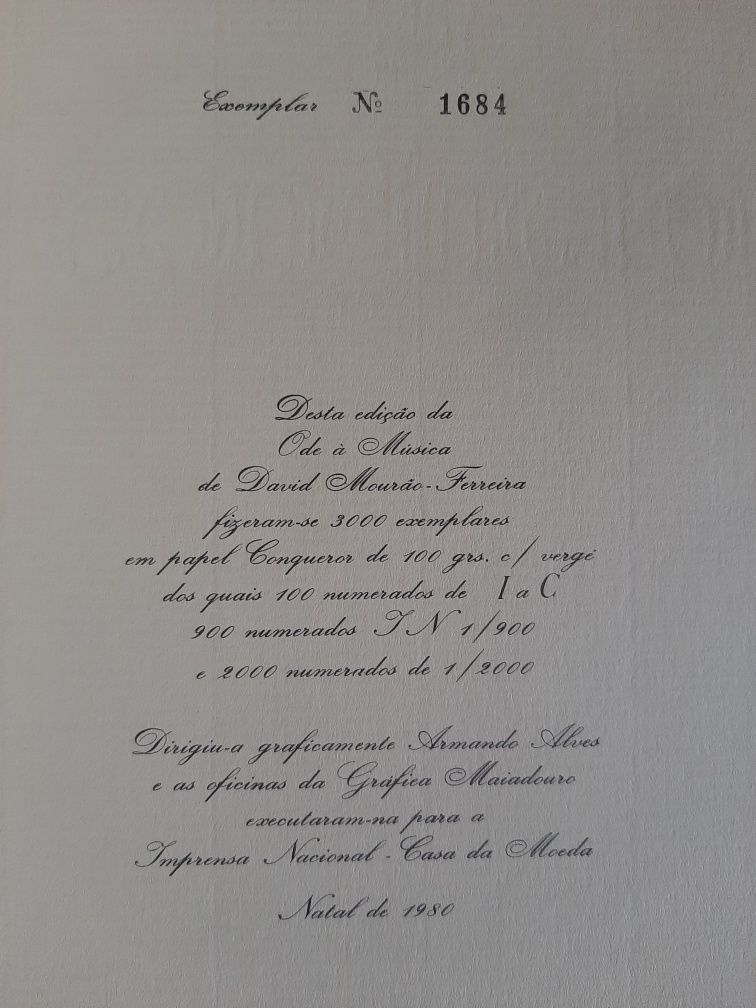 Exemplar Nº 1684
Desta edição da
Ode à Música
de David Mourão-Ferreira
fizeram-se 3000 exemplares
em papel Conqueror de 100 grs. c/ vergé
dos quais 100 numerados de I a C
900 numerados I N 1/900
e 2000 numerados de 1/2000
Dirigiu-a graficamente Armando Alves
e as oficinas da Gráfica Maiadouro
executaram-na para a
Imprensa Nacional - Casa da Moeda
Natal de 1980